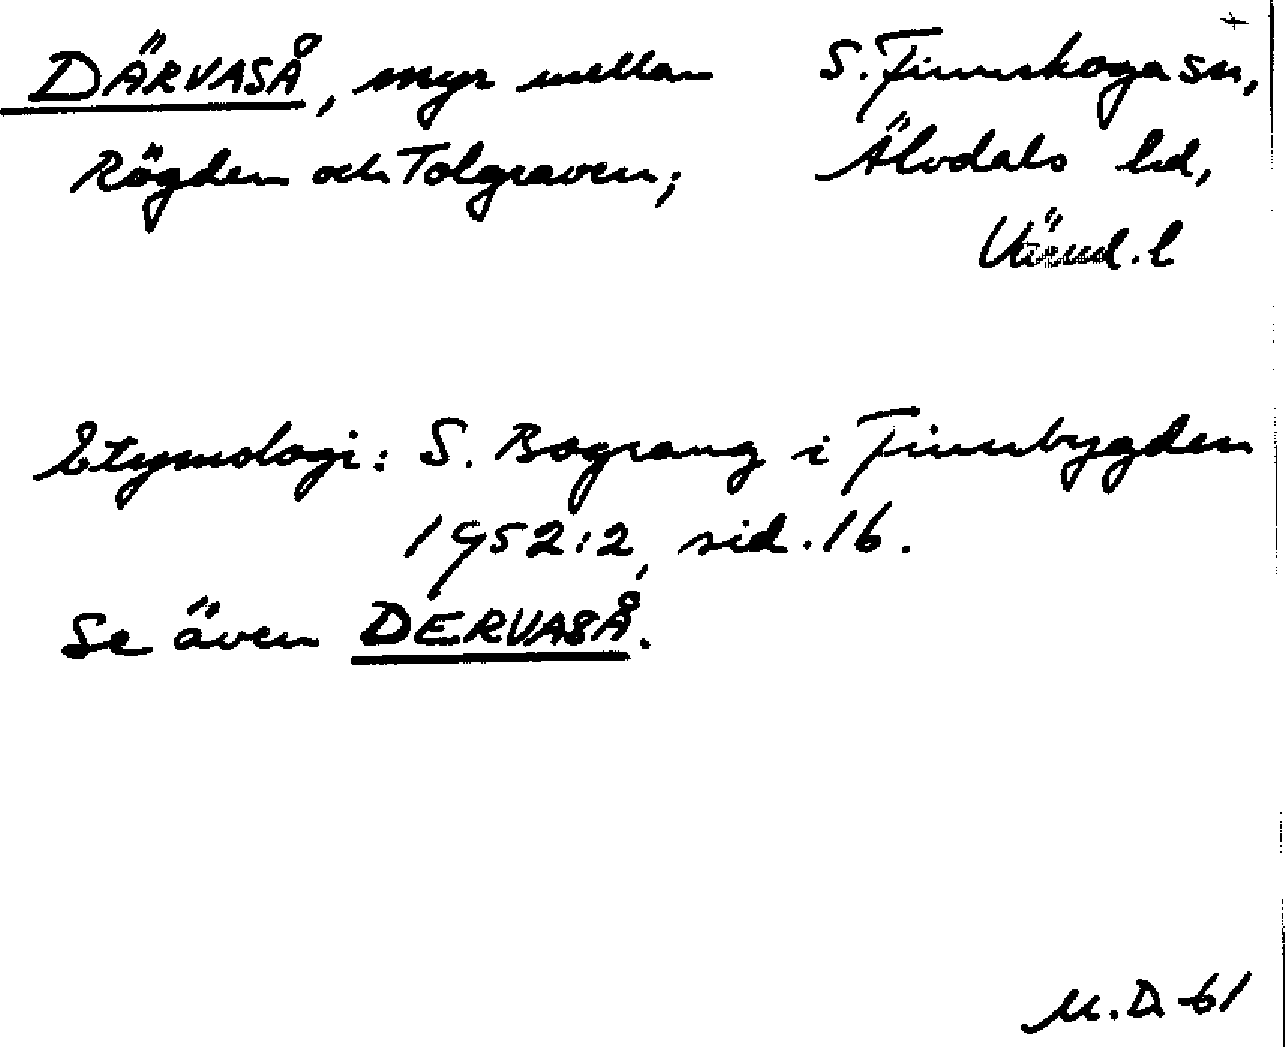 DÄRVASÅ, myr mellan S. Finnskoga sn,
Rögden och Tolgraven; Älvdals hd,
Värml. l
Etymologi: S. Bograng i Finnbygden
1952:2, sid. 16.
Se även DERVASÅ.
M.D. -61